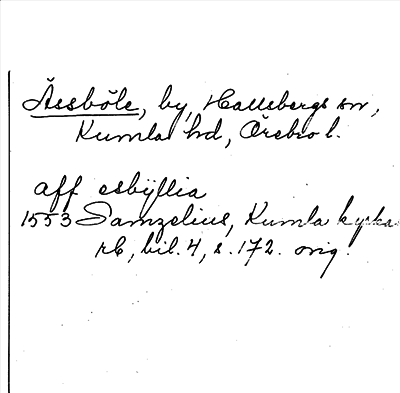 Ässböle, by, Hallsbergs sn,
Kumla hd, Örebro l.
aff esbÿllia
1553 Samzelius, Kumla kyrka
rb, bil. 4, s. 172. orig.